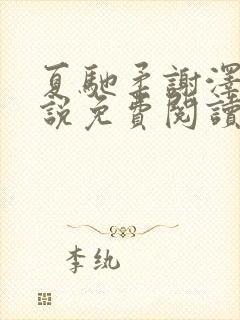 夏馳柔謝澤
說免費閱讀
李紈